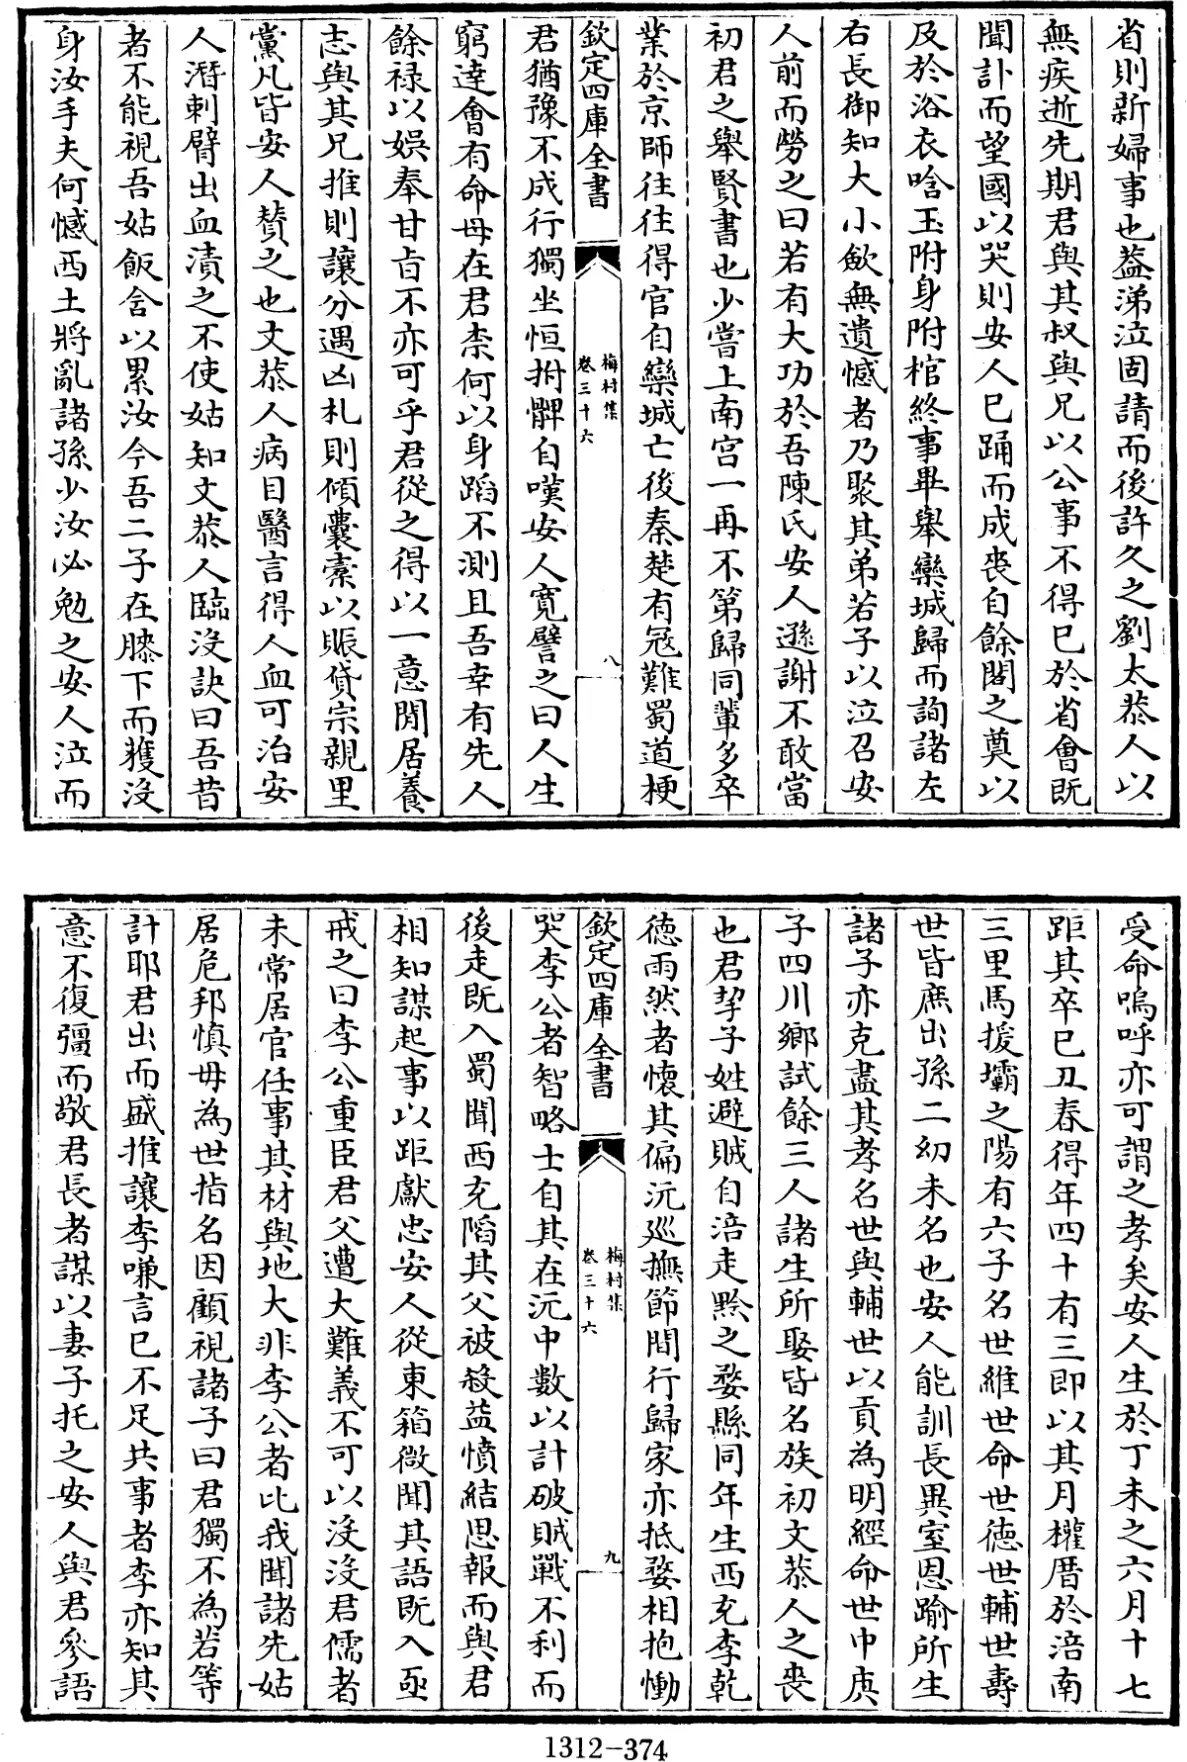 省則新婦事也葢涕泣固請而後許久之劉太恭人以
無疾逝先期君與其叔與兄以公事不得已於省會既
聞訃而望國以哭則安人已踊而成喪自餘閣之奠以
及於浴衣唅玉附身附棺終事畢舉欒城歸而詢諸左
右長御知大小斂無遺憾者乃聚其弟若子以泣召安
人前而勞之曰若有大功於吾陳氏安人遜謝不敢當
初君之舉賢書也少嘗上南宫一再不第歸同輩多卒
業於京師往往得官自欒城亡後秦楚有冦難蜀道梗
欽定四庫全書
梅村集
卷三十六
八
君猶豫不成行獨坐恒拊髀自嘆安人寛譬之曰人生
窮達會有命母在君柰何以身蹈不測且吾幸有先人
餘禄以娯奉甘㫖不亦可乎君從之得以一意閒居養
志與其兄推則讓分遇凶札則傾囊橐以賑貸宗親里
黨凡皆安人賛之也文恭人病目醫言得人血可治安
人潛刺臂出血漬之不使姑知文恭人臨没訣曰吾昔
者不能視吾姑飯含以累汝今吾二子在膝下而獲没
身汝手夫何憾西土將亂諸孫少汝必勉之安人泣而
受命嗚呼亦可謂之孝矣安人生於丁未之六月十七
距其卒已丑春得年四十有三即以其月權厝於涪南
三里馬援壩之陽有六子名世維世命世徳世輔世壽
世皆庶出孫二幼未名也安人能訓長異室恩踰所生
諸子亦克盡其孝名世與輔世以貢為明經命世中庚
子四川鄉試餘三人諸生所娶皆名族初文恭人之喪
也君挈子姓避賊自涪走黔之婺縣同年生西充李乾
徳雨然者懷其偏沅廵撫節間行歸家亦抵婺相抱慟
欽定四庫全書
梅村集
卷三十六
九
哭李公者智略士自其在沅中數以計破賊戰不利而
後走既入蜀聞西充陷其父被殺益憤結思報而與君
相知謀起事以距獻忠安人從東箱微聞其語既入亟
戒之曰李公重臣君父遭大難義不可以沒沒君儒者
未常居官任事其材與地大非李公者比我聞諸先姑
居危邦慎毋為世指名因顧視諸子曰君獨不為若等
計耶君出而盛推讓李嗛言已不足共事者李亦知其
意不復彊而敬君長者謀以妻子托之安人與君參語
1312-374